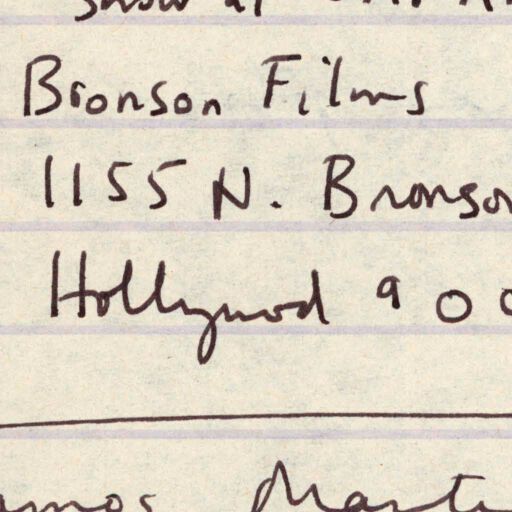 Bronson Films
1155 N. Bronson
Hollywood 900
amos Marti